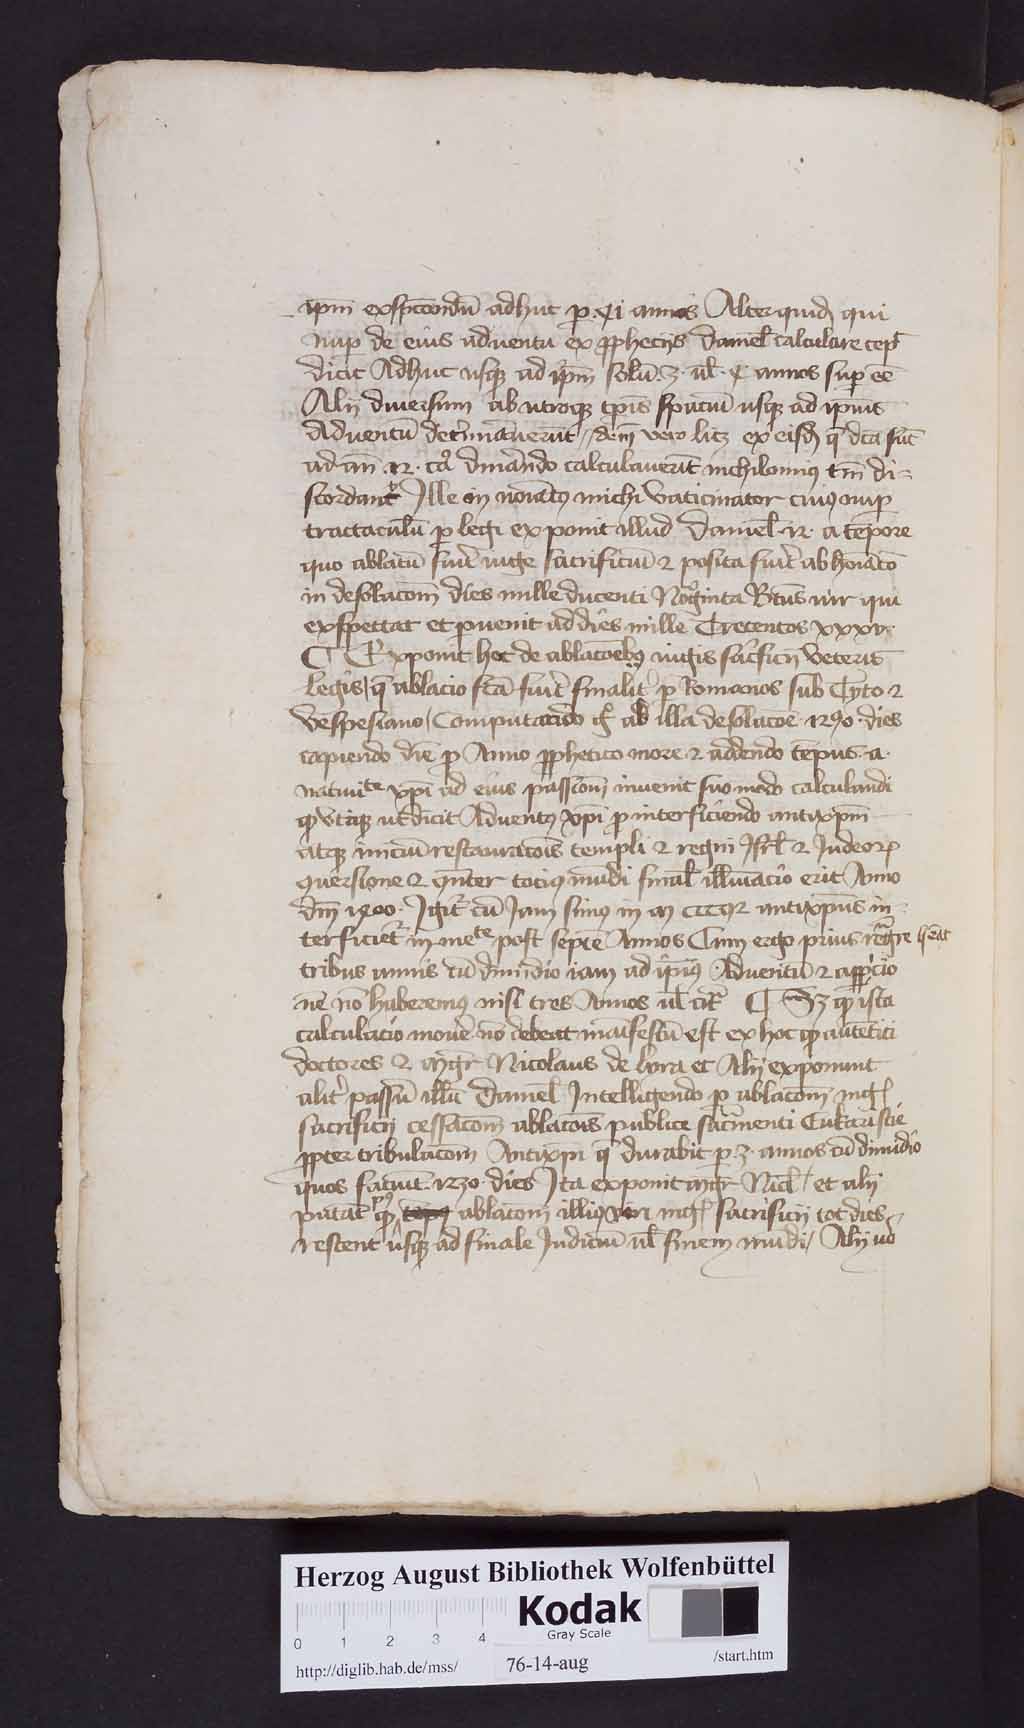 ipm̄ exspectandū adhuc p xi annos Alter quidē qui
nup de eius aduentu ex pphecijs Daniel calculare cep
dicit Adhuc usq ad ipm̄ solū 3 ul 4 annos sup ee
Alij diuersum ab utroq tpis spaciū usq ad ipius
Aduentū determinauerūt / dem vero licz ex eisdē q dca sūt
ad an 12 ca dm̄ando calculauerūt nichilomiꝰ tm̄ di-
scordant Ille em̄ noīatꝰ michi Vaticinator cuiꝰ nup
tractaculū p legi exponit illud Daniel 12 a tempore
quo ablatū fuīt iuge sacrificiū 2 posita fuīt abhoīacō
in desolacom̄ dies mille ducenti Noginta Btus vir qui
exspectat et puenit ad dies mille Trecentos xxxv
Exponit hoc de ablacoēbꝰ iugis sacficij veteris
legis / q ablacio fca fuīt finalit p Romanos sub Tyto 2
Vespesiano / Computando g ab illa desolacoē 1290 dies
capiendo diē p Anno pphetico more 2 addendo tempus a
natiuite xpi ad eius passionē inuenit suo modo calculandi
q vtiq ut dicit Aduentꝰ xpi p interficiendo antixpm̄
atq iniciū restauracōis templi 2 regni Isrl 2 Iudeorꝫ
9uersione 2 gnter totiꝰ mūdi final illuīacio erit Anno
dm̄ 1400 Igit cū Iam simꝰ in M cccc antixpus in-
terficiet in mete post septē Annos Cum ergo prius regre hēat
tribus annis cū dimidio iam ad ipius Aduentū 2 appicio
nē nō haberemꝰ nisi tres Annos ul cit Sz q ista
calculacio mouē nō debeat māifestū est ex hoc q autētici
doctores 2 mgr Nicolaus de lyra et Alij exponunt
alit passū illū Daniel Intelligendo p ablacom̄ iugis
sacrificij cessacom̄ ablacois publice sacmenti Eukaristie
ppter tribulacom̄ Antixpi q durabit p 3 annos cū dimidio
quos faciūt 1230 dies Ita exponit mgr Nicl / et alij
putāt q post ablacom̄ illiꝰ veri iugis sacrificij tot dies
restent usq ad finale Iudiciū ul finem mūdi / Alij uo
Herzog August Bibliothek Wolfenbüttel
Kodak
Gray Scale
0 1 2 3 4
http://diglib.hab.de/mss/ 76-14-aug /start.htm